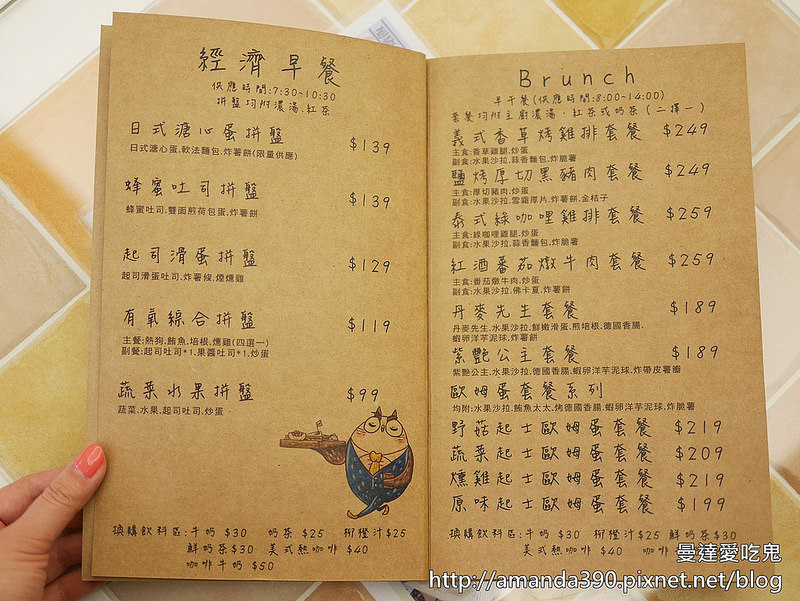 經濟早餐
供應時間:7:30~10:30
拼盤均附濃湯.紅茶
日式溏心蛋拼盤 $139
日式溏心蛋.軟法麵包.炸薯餅(限量供應)
蜂蜜吐司拼盤 $139
蜂蜜吐司.雙面煎荷包蛋.炸薯餅
起司滑蛋拼盤 $129
起司滑蛋吐司.炸薯條.煙燻雞
有氧綜合拼盤 $119
主餐:熱狗.鮪魚.培根.燻雞(四選一)
副餐:起司吐司*1.果醬吐司*1.炒蛋
蔬菜水果拼盤 $99
蔬菜.水果.起司吐司.炒蛋
換購飲料區:牛奶 $30 奶茶 $25 柳橙汁$25
鮮奶茶$30 美式熱咖啡 $40
咖啡牛奶 $50
Brunch
早午餐(供應時間:8:00~14:00)
套餐均附主廚濃湯.紅茶或奶茶(二擇一)
義式香草烤雞排套餐 $249
主食:香草雞腿.炒蛋
副食:水果沙拉.蒜香麵包.炸脆薯
鹽烤厚切黑豬肉套餐 $249
主食:厚切豬肉.炒蛋
副食:水果沙拉.雪霜厚片.炸薯餅.金桔子
泰式綠咖哩雞排套餐 $259
主食:綠咖哩雞腿.炒蛋
副食:水果沙拉.蒜香麵包.炸脆薯
紅酒蕃茄燉牛肉套餐 $259
主食:番茄燉牛肉.炒蛋
副食:水果沙拉.佛卡夏.炸薯餅
丹麥先生套餐 $189
丹麥先生.水果沙拉.鮮嫩滑蛋.煎培根.德國香腸.
蝦卵洋芋泥球.炸薯餅
紫艷公主套餐 $189
紫艷公主.水果沙拉.德國香腸.蝦卵洋芋泥球.炸帶皮薯瓣
歐姆蛋套餐系列
均附:水果沙拉.鮪魚太太.烤德國香腸.蝦卵洋芋泥球.炸脆薯
野菇起士歐姆蛋套餐 $219
蔬菜起士歐姆蛋套餐 $209
燻雞起士歐姆蛋套餐 $219
原味起士歐姆蛋套餐 $199
換購飲料區:牛奶 $30 柳橙汁$25 鮮奶茶$30
美式熱咖啡 $40 咖啡
曼達愛吃鬼
http://amanda390.pixnet.net/blog